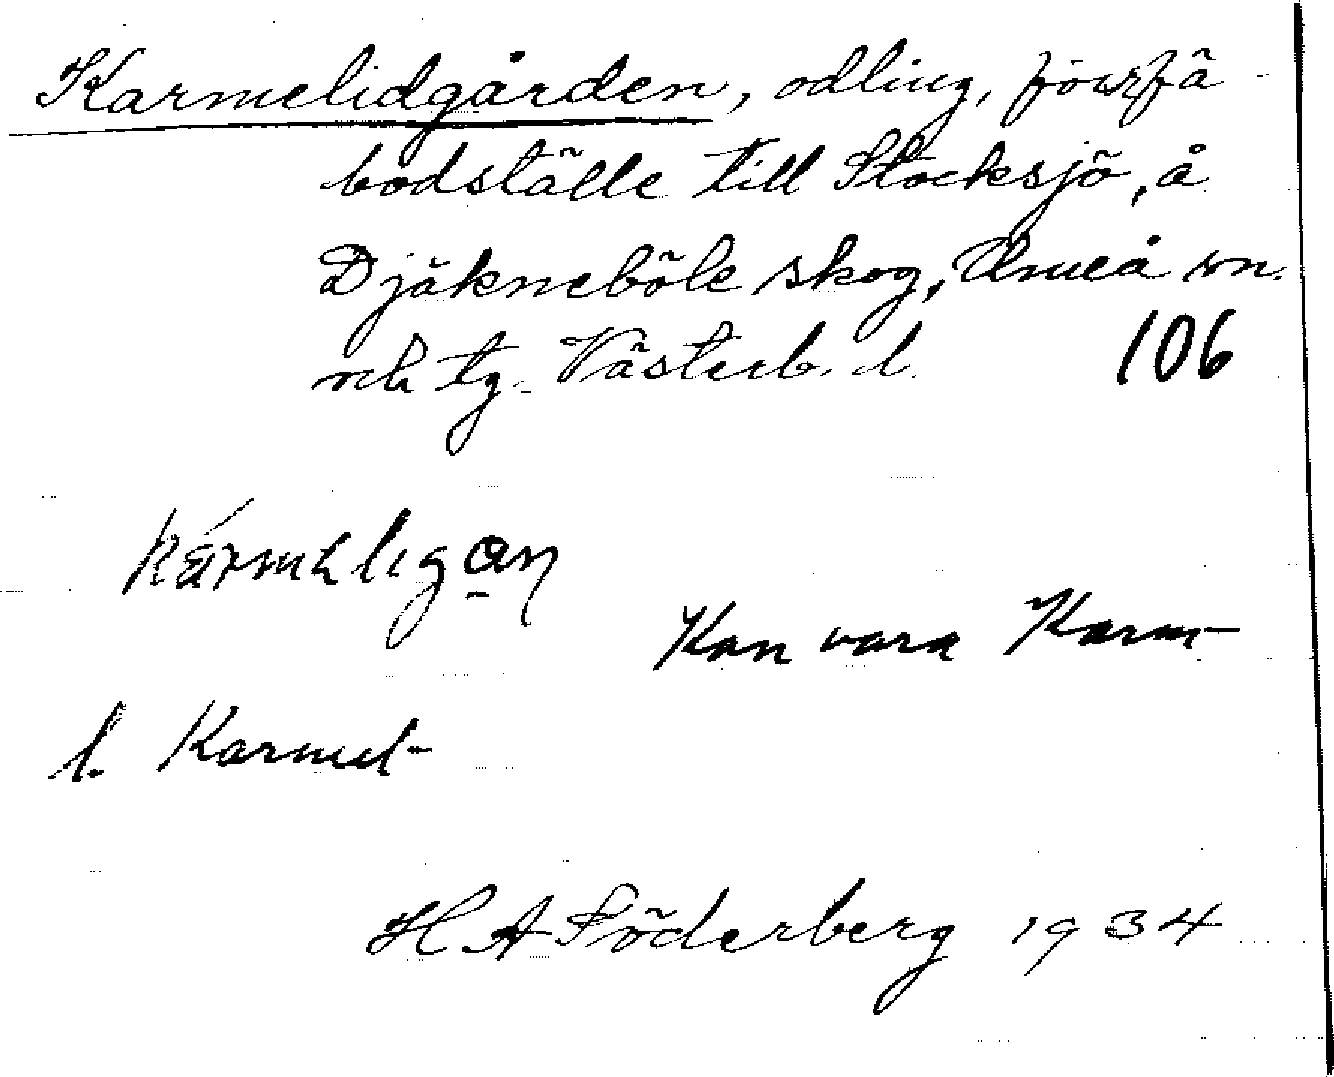 Karmelidgården, odling, förr fä-
bodställe till Stocksjö, å
Djäkneböle skog, Umeå sn.
och tg. Västerb. l.
106
Kan vara Karm-
l. Karmel-
H A Söderberg 1934